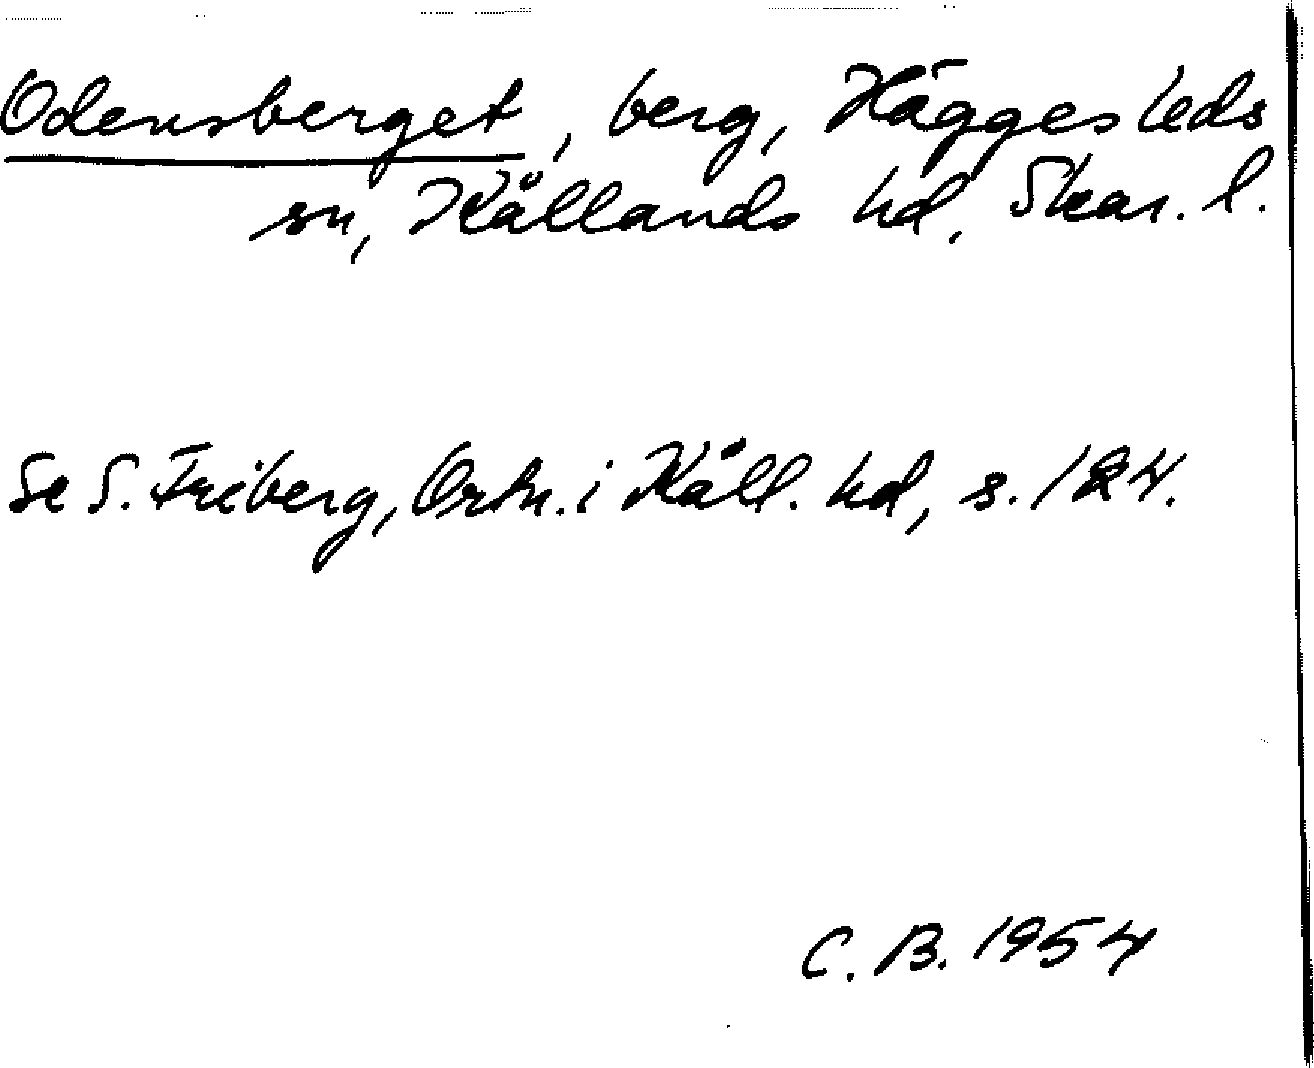 Odensberget, berg, Häggesleds
sn, Kållands hd, Skar. l.
Se S. Friberg, Ortn. i Kåll. hd, s. 124.
C. B. 1954